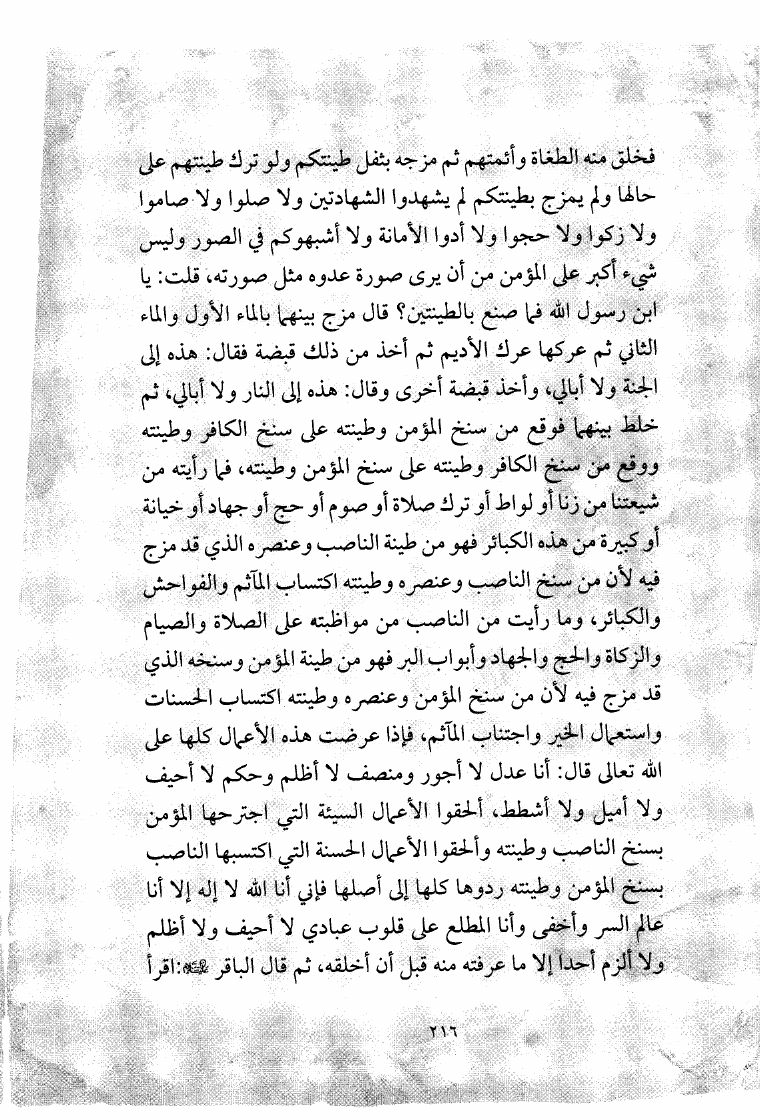 فخلق منه الطغاة وأئمتهم ثم مزجه بثفل طينتكم ولو ترك طينتهم على
حالها ولم يمزج بطينتكم لم يشهدوا الشهادتين ولا صلوا ولا صاموا
ولا زكوا ولا حجوا ولا أدوا الأمانة ولا أشبهوكم في الصور وليس
شيء أكبر على المؤمن من أن يرى صورة عدوه مثل صورته، قلت: يا
ابن رسول الله فما صنع بالطينتين؟ قال مزج بينهما بالماء الأول والماء
الثاني ثم عركها عرك الأديم ثم أخذ من ذلك قبضة فقال: هذه إلى
الجنة ولا أبالي، وأخذ قبضة أخرى وقال: هذه إلى النار ولا أبالي، ثم
خلط بينهما فوقع من سنخ المؤمن وطينته على سنخ الكافر وطينته
ووقع من سنخ الكافر وطينته على سنخ المؤمن وطينته، فما رأيته من
شيعتنا من زنا أو لواط أو ترك صلاة أو صوم أو حج أو جهاد أو خيانة
أو كبيرة من هذه الكبائر فهو من طينة الناصب وعنصره الذي قد مزج
فيه لأن من سنخ الناصب وعنصره وطينته اكتساب المآثم والفواحش
والكبائر، وما رأيت من الناصب من مواظبته على الصلاة والصيام
والزكاة والحج والجهاد وأبواب البر فهو من طينة المؤمن وسنخه الذي
قد مزج فيه لأن من سنخ المؤمن وعنصره وطينته اكتساب الحسنات
واستعمال الخير واجتناب المآثم، فإذا عرضت هذه الأعمال كلها على
الله تعالى قال: أنا عدل لا أجور ومنصف لا أظلم وحكم لا أحيف
ولا أميل ولا أشطط، ألحقوا الأعمال السيئة التي اجترحها المؤمن
بسنخ الناصب وطينته وألحقوا الأعمال الحسنة التي اكتسبها الناصب
بسنخ المؤمن وطينته ردوها كلها إلى أصلها فإني أنا الله لا إله إلا أنا
عالم السر وأخفى وأنا المطلع على قلوب عبادي لا أحيف ولا أظلم
ولا ألزم أحدا إلا ما عرفته منه قبل أن أخلقه، ثم قال الباقر :اقرأ
٢١٦